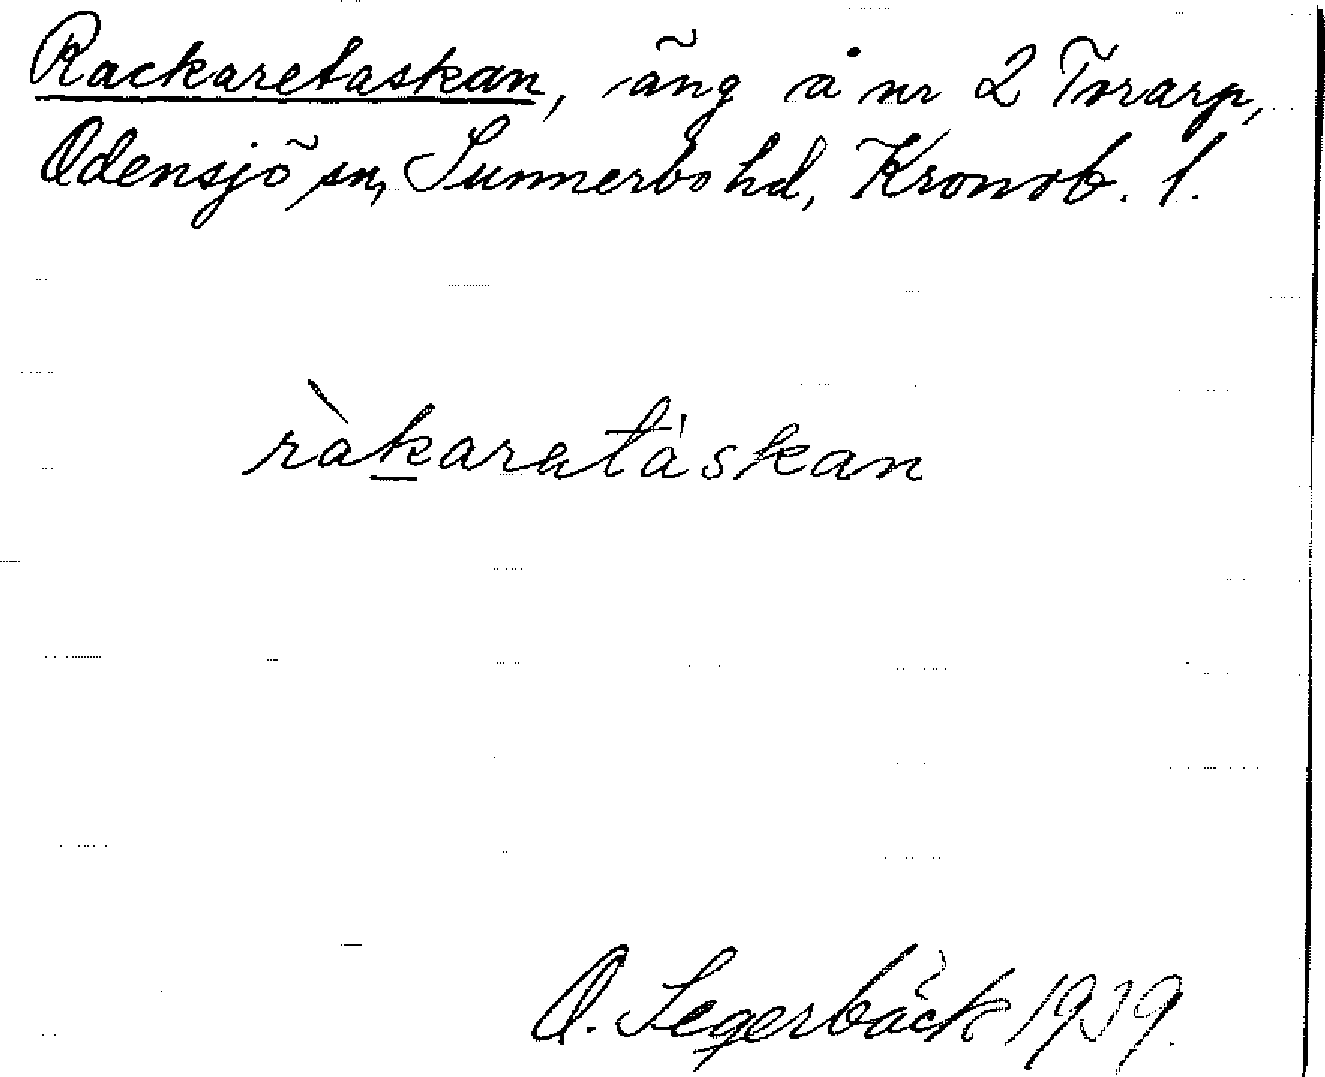 Rackaretaskan, äng å nr 2 Torarp,
Odensjö sn, Sunnerbo hd, Kronob. l.
ràkaratáskan
O. Segerbäck 1939.